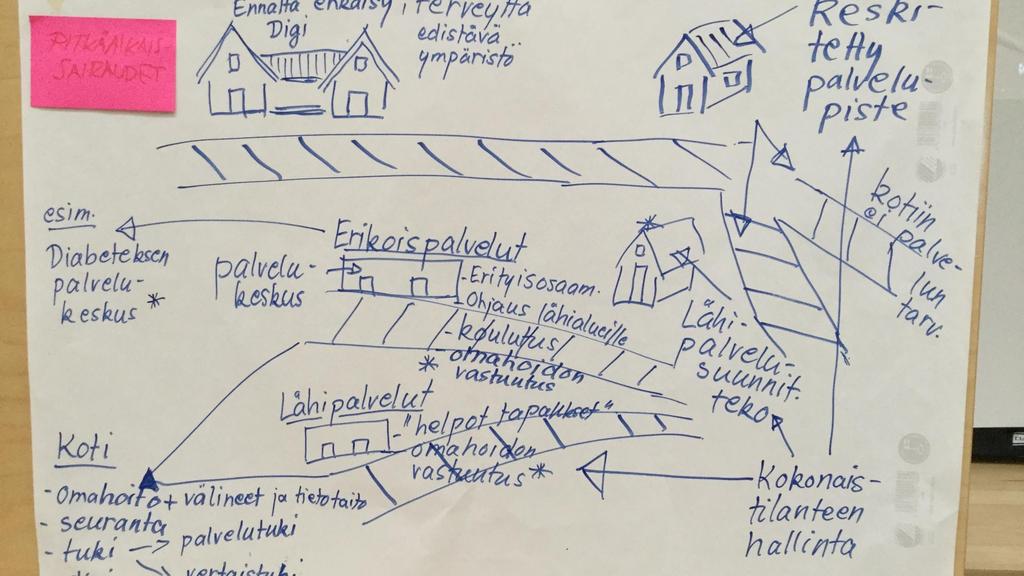 Ennalta ehkäisy, terveyttä
Digi
edistävä
ympäristö
PITKÄAIKAIS-
SAIRAUDET
Keski-
tetty
palvelu-
piste
kotiin
ei palve-
lun
tarv.
esim.
Diabeteksen
palvelu-
keskus *
Erikoispalvelut
palvelu-
keskus
- Erityisosaam.
- Ohjaus lähialueille
- koulutus
* omahoidon
vastuutus
Lähi-
palvelu-
suunnit.
teko
Lähipalvelut
- "helpot tapaukset"
omahoidon
vastuutus *
Koti
- Omahoito + välineet ja tietotaito
- seuranta
- tuki → palvelutuki
vertaistuki
Kokonais-
tilanteen
hallinta